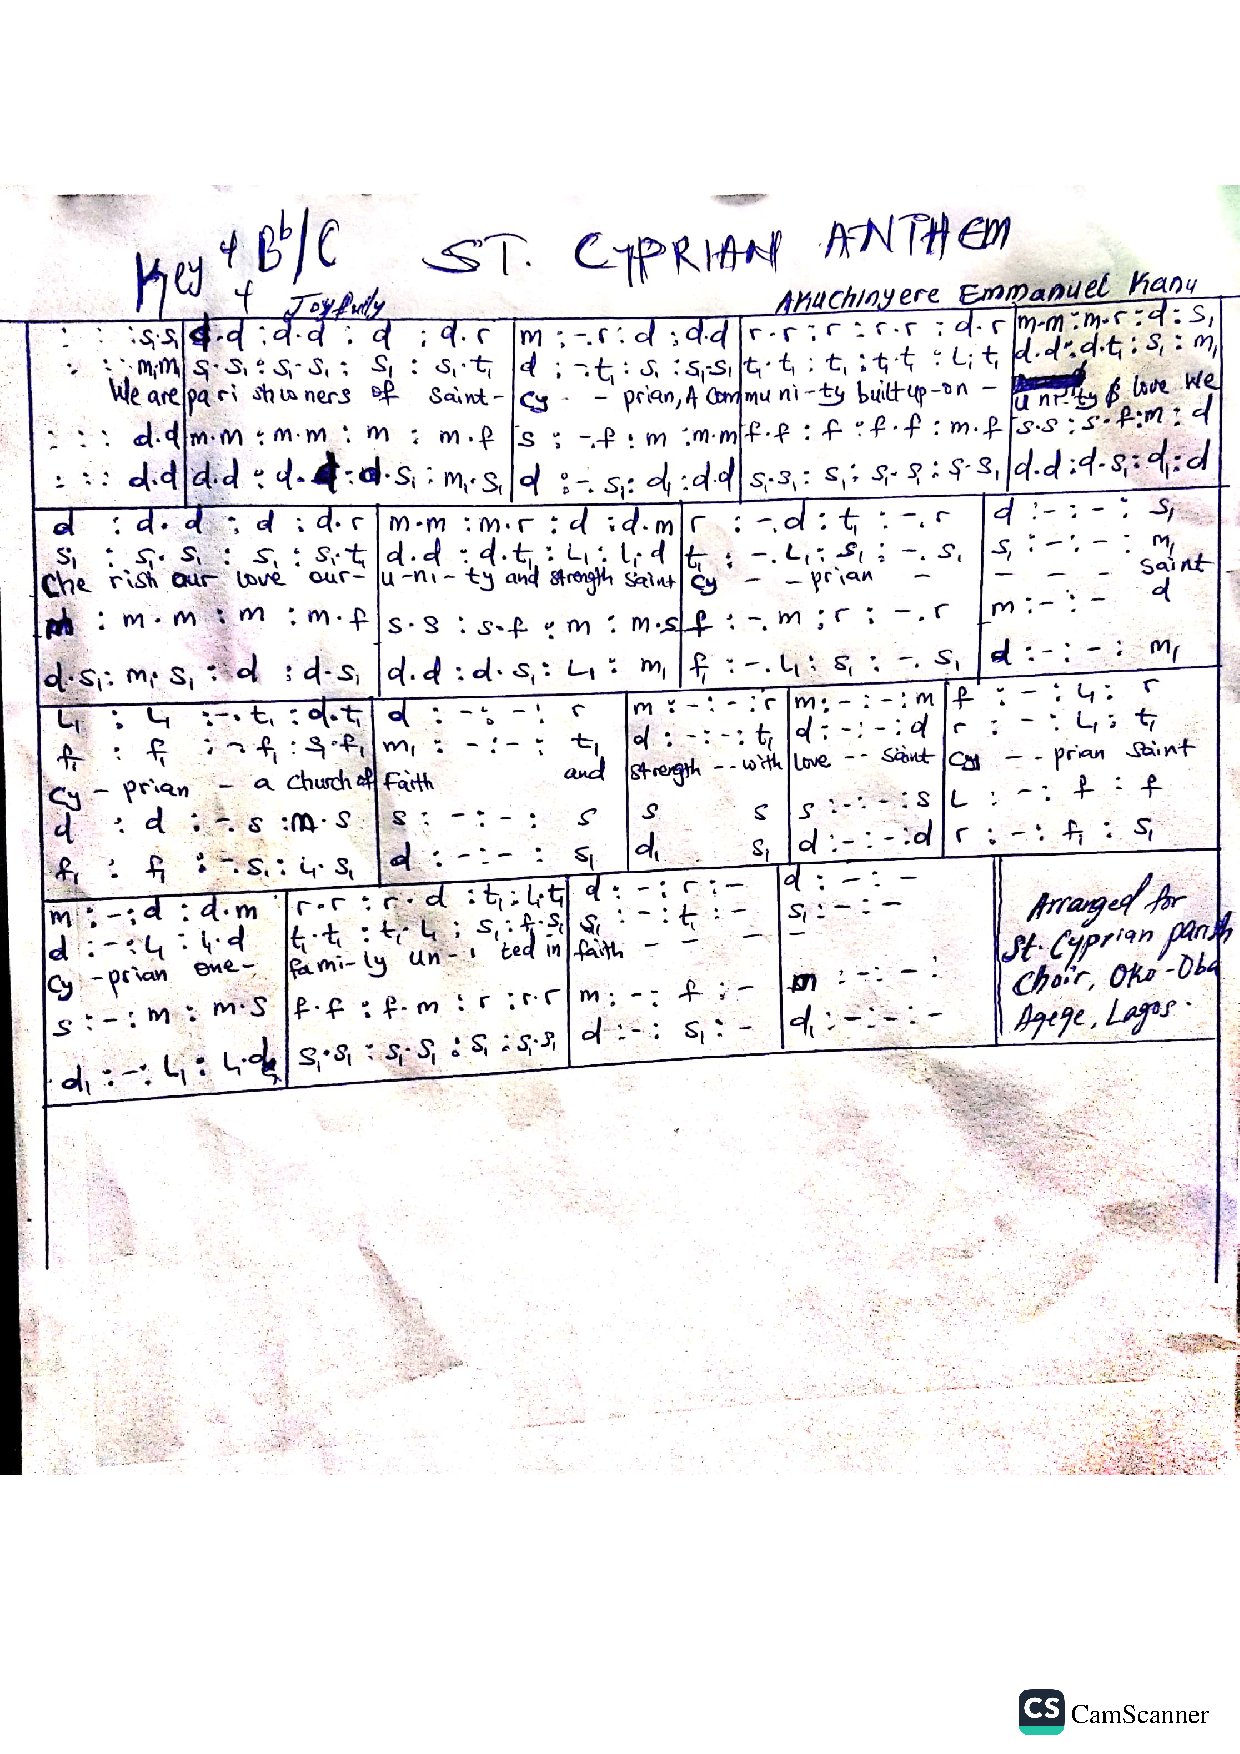 Key 4 Bb/C ST. CYPRIAN ANTHEM
4 Joyfully AKUCHINYERE EMMANUEL KANU
: : : s₁.s₁ | d.d : d.d : d : d.r | m : -.r : d : d.d | r.r : r : r.r : d.r | m.m : m.r : d : s₁
: : : m₁.m₁ | s₁.s₁ : s₁.s₁ : s₁ : s₁.t₁ | d : -.t₁ : s₁ : s₁.s₁ | t₁.t₁ : t₁ : t₁.t₁ : L₁.t₁ | d.d : d.t₁ : s₁ : m₁
We are pari shioners of Saint- Cy - - prian, A Commu ni-ty built up-on - u ni-ty & love We
: : : d.d | m.m : m.m : m : m.f | s : -.f : m : m.m | f.f : f : f.f : m.f | s.s : s.f : m : d
: : : d.d | d.d : d.d : d.s₁ : m₁.s₁ | d : -.s₁ : d₁ : d.d | s₁.s₁ : s₁ : s₁.s₁ : s₁.s₁ | d.d : d.s₁ : d₁ : d
d : d.d : d : d.r | m.m : m.r : d : d.m | r : -.d : t₁ : -.r | d : - : - : s₁
s₁ : s₁.s₁ : s₁ : s₁.t₁ | d.d : d.t₁ : L₁ : L₁.d | t₁ : -.L₁ : s₁ : -.s₁ | s₁ : - : - : m₁
Che rish our love our- u-ni-ty and strength Saint Cy - - prian - - - - Saint
m : m.m : m : m.f | s.s : s.f : m : m.s | f : -.m : r : -.r | m : - : - d
d.s₁ : m₁.s₁ : d : d.s₁ | d.d : d.s₁ : L₁ : m₁ | f₁ : -.L₁ : s₁ : -.s₁ | d : - : - : m₁
L₁ : L₁ : -.t₁ : d.t₁ | d : - : - : r | m : - : - : r | m : - : - : m | f : - : L₁ : r
f₁ : f₁ : - f₁ : s₁.f₁ | m₁ : - : - : t₁ | d : - : - : t₁ | d : - : - : d | r : - : L₁ : t₁
Cy - prian - a Church of Faith and strength -- with love -- Saint Cy - - prian Saint
d : d : -.s : m.s | s : - : - : s | s s | s : - : - : s | L : - : f : f
f₁ : f₁ : -.s₁ : L₁.s₁ | d : - : - : s₁ | d₁ s₁ | d : - : - : d | r : - : f₁ : s₁
m : - : d : d.m | r.r : r.d : t₁ : L₁.t₁ | d : - : r : - | d : - : -
d : - : L₁ : L₁.d | t₁.t₁ : t₁.L₁ : s₁ : f₁.s₁ | s₁ : - : t₁ : - | s₁ : - : -
Cy - prian one- fami-ly un-i ted in faith - - - -
s : - : m : m.s | f.f : f.m : r : r.r | m : - : f : - | m : - : - :
d₁ : - : L₁ : L₁.d | s₁.s₁ : s₁.s₁ : s₁ : s₁.s₁ | d : - : s₁ : - | d₁ : - : - : -
Arranged for
St. Cyprian parish
Choir, Oko-Oba
Agege, Lagos.
CS CamScanner